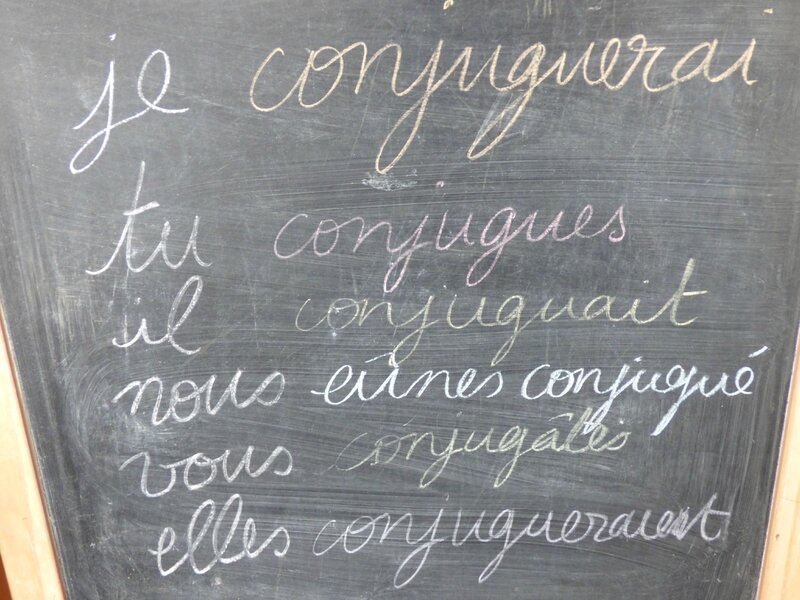 je conjuguerai
tu conjugues
il conjuguait
nous eûnes conjugué
vous conjugâtes
elles conjugueraient